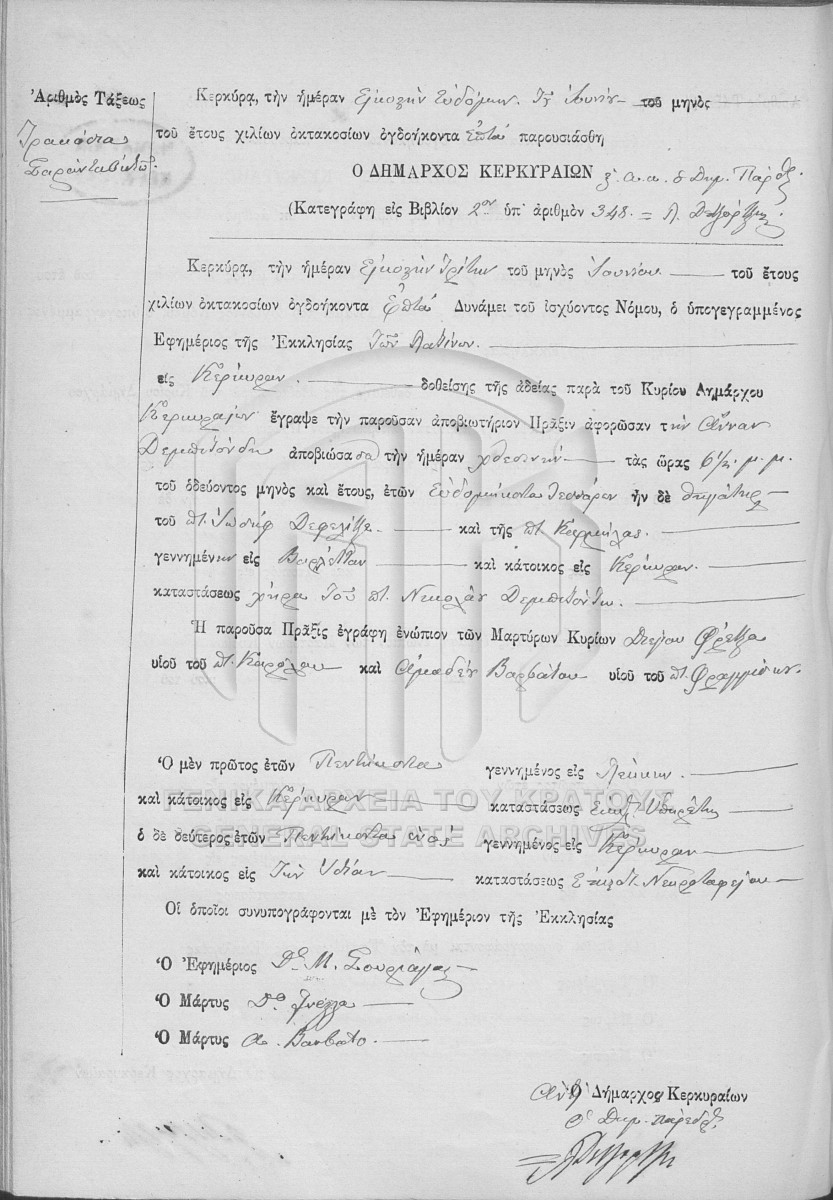 Ἀριθμὸς Τάξεως
Τριακόσια
Σαράντα
Κερκύρα, τὴν ἡμέραν Εἰκοστὴν Ἑβδόμην Ἰουνίου τοῦ μηνὸς
τοῦ ἔτους χιλίων ὀκτακοσίων ὀγδοήκοντα Ἑπτὰ παρουσιάσθη
Ο ΔΗΜΑΡΧΟΣ ΚΕΡΚΥΡΑΙΩΝ ὁ Δημ. Πάρεδρ.
(Κατεγράφη εἰς Βιβλίον 2ον ὑπ' ἀριθμὸν 348.
Κερκύρα, τὴν ἡμέραν Εἰκοστὴν Τρίτην τοῦ μηνὸς Ἰουνίου τοῦ ἔτους
χιλίων ὀκτακοσίων ὀγδοήκοντα Ἑπτὰ Δυνάμει τοῦ ἰσχύοντος Νόμου, ὁ ὑπογεγραμμένος
Ἐφημέριος τῆς Ἐκκλησίας τῶν Λατίνων.
εἰς Κέρκυραν δοθείσης τῆς ἀδείας παρὰ τοῦ Κυρίου Δημάρχου
Κερκυραίων ἔγραψε τὴν παροῦσαν ἀποβιωτήριον Πρᾶξιν ἀφορῶσαν τὴν Ἄνναν
ἀποβιώσασα τὴν ἡμέραν χθεσινὴν τὰς ὥρας 6½ μ.μ.
τοῦ ὁδεύοντος μηνὸς καὶ ἔτους, ἐτῶν Ἑβδομήκοντα Τεσσάρων ἦν δὲ θυγάτηρ
τοῦ π. Ἰωσὴφ Δεφελίτζε καὶ τῆς π. Καρμήλας.
γεννημένην εἰς Βαρλέτταν καὶ κάτοικος εἰς Κέρκυραν.
καταστάσεως χήρα τοῦ π. Νικολάου
Ἡ παροῦσα Πρᾶξις ἐγράφη ἐνώπιον τῶν Μαρτύρων Κυρίων
υἱοῦ τοῦ π. Καρόλου καὶ Ἀμαδέου Βαρβάτου υἱοῦ τοῦ π. Φραγκίσκου.
Ὁ μὲν πρῶτος ἐτῶν Πεντήκοντα γεννημένος εἰς
καὶ κάτοικος εἰς Κέρκυραν καταστάσεως Ἐκκλ. Ὑπηρέτης
ὁ δὲ δεύτερος ἐτῶν Πεντήκοντα ἑνὸς γεννημένος εἰς Κέρκυραν
καὶ κάτοικος εἰς τὴν Ἰδίαν καταστάσεως Ἐπιστ. Νεκροταφείου
Οἱ ὁποῖοι συνυπογράφονται μὲ τὸν Ἐφημέριον τῆς Ἐκκλησίας
Ὁ Ἐφημέριος Δ. Μ.
Ὁ Μάρτυς
Ὁ Μάρτυς Α. Βαρβάτο
Ἀντ' Ὁ Δήμαρχος Κερκυραίων
Ὁ Δημ. Πάρεδρ.
ΓΕΝΙΚΑ ΑΡΧΕΙΑ ΤΟΥ ΚΡΑΤΟΥΣ
GENERAL STATE ARCHIVES